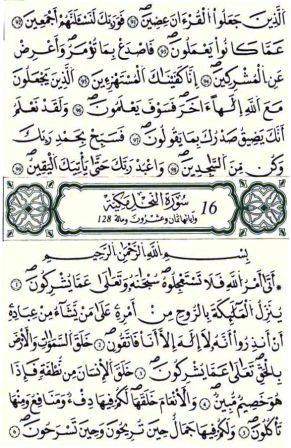 الَّذِينَ جَعَلُوا الْقُرْءَانَ عِضِينَ ۝ فَوَرَبِّكَ لَنَسْـَٔلَنَّهُمْ أَجْمَعِينَ ۝
عَمَّا كَانُوا يَعْمَلُونَ ۝ فَاصْدَعْ بِمَا تُؤْمَرُ وَأَعْرِضْ
عَنِ الْمُشْرِكِينَ ۝ إِنَّا كَفَيْنَاكَ الْمُسْتَهْزِءِينَ ۝ الَّذِينَ يَجْعَلُونَ
مَعَ اللَّهِ إِلَٰهًا ءَاخَرَ فَسَوْفَ يَعْلَمُونَ ۝ وَلَقَدْ نَعْلَمُ
أَنَّكَ يَضِيقُ صَدْرُكَ بِمَا يَقُولُونَ ۝ فَسَبِّحْ بِحَمْدِ رَبِّكَ
وَكُن مِّنَ السَّاجِدِينَ ۝ وَاعْبُدْ رَبَّكَ حَتَّىٰ يَأْتِيَكَ الْيَقِينُ ۝
16 سُورَةُ النَّحْلِ مَكِّيَّة
وَآيَاتُهَا ثَمَان وَعِشْرُونَ وَمِائَة 128
بِسْمِ اللَّهِ الرَّحْمَٰنِ الرَّحِيمِ
أَتَىٰ أَمْرُ اللَّهِ فَلَا تَسْتَعْجِلُوهُ سُبْحَانَهُ وَتَعَالَىٰ عَمَّا يُشْرِكُونَ ۝
يُنَزِّلُ الْمَلَائِكَةَ بِالرُّوحِ مِنْ أَمْرِهِ عَلَىٰ مَن يَشَاءُ مِنْ عِبَادِهِ
أَنْ أَنذِرُوا أَنَّهُ لَا إِلَٰهَ إِلَّا أَنَا فَاتَّقُونِ ۝ خَلَقَ السَّمَاوَاتِ وَالْأَرْضَ
بِالْحَقِّ تَعَالَىٰ عَمَّا يُشْرِكُونَ ۝ خَلَقَ الْإِنسَانَ مِن نُّطْفَةٍ فَإِذَا
هُوَ خَصِيمٌ مُّبِينٌ ۝ وَالْأَنْعَامَ خَلَقَهَا لَكُمْ فِيهَا دِفْءٌ وَمَنَافِعُ وَمِنْهَا
تَأْكُلُونَ ۝ وَلَكُمْ فِيهَا جَمَالٌ حِينَ تُرِيحُونَ وَحِينَ تَسْرَحُونَ ۝